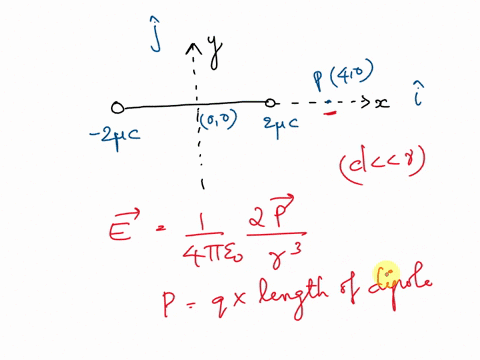 ĵ
y
P (4,0)
x î
-2μc (0,0) 2μc
(d<<r)
E⃗ = 1/4πε₀ 2P⃗/r³
P = q × length of dipole